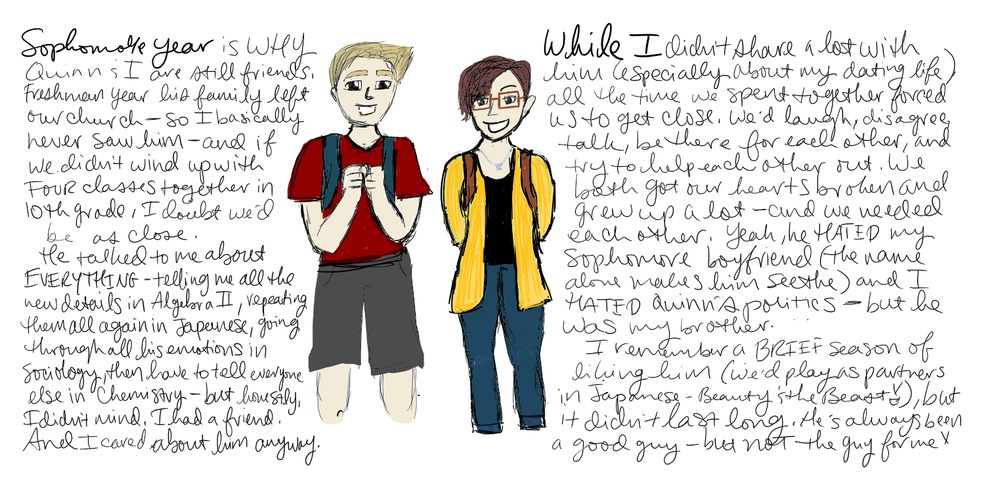 Sophomore year is WHY
Quinn & I are still friends.
Freshman year his family left
our church - so I basically
never saw him - and if
we didn't wind up with
FOUR classes together in
10th grade, I doubt we'd
be as close.
He talked to me about
EVERYTHING - telling me all the
new details in Algebra II, repeating
them all again in Japanese, going
through all his emotions in
Sociology, then have to tell everyone
else in Chemistry - but honestly,
I didn't mind. I had a friend.
And I cared about him anyway.
While I didn't share a lot with
him (especially about my dating life)
all the time we spent together forced
us to get close. We'd laugh, disagree,
talk, be there for each other, and
try to help each other out. We
both got our hearts broken and
grew up a lot - and we needed
each other. Yeah, he HATED my
Sophomore boyfriend (the name
alone makes him seethe) and I
HATED Quinn's politics - but he
was my brother.
I remember a BRIEF season of
liking him (we'd play as partners
in Japanese - Beauty & the Beast), but
it didn't last long. He's always been
a good guy - but not the guy for me